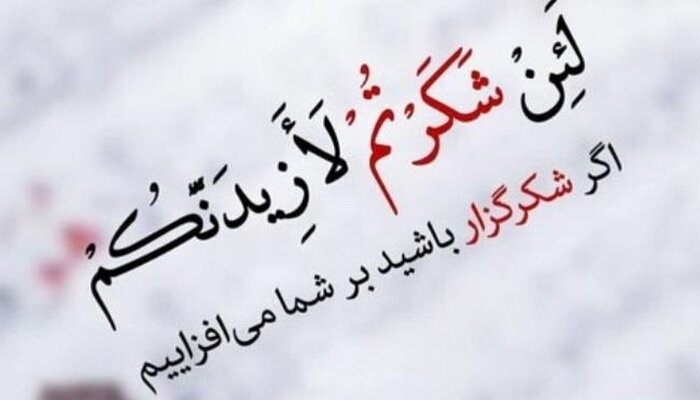 لَئِنْ شَكَرْتُمْ لَأَزِيدَنَّكُمْ
اگر شکرگزار باشید بر شما می‌افزاییم